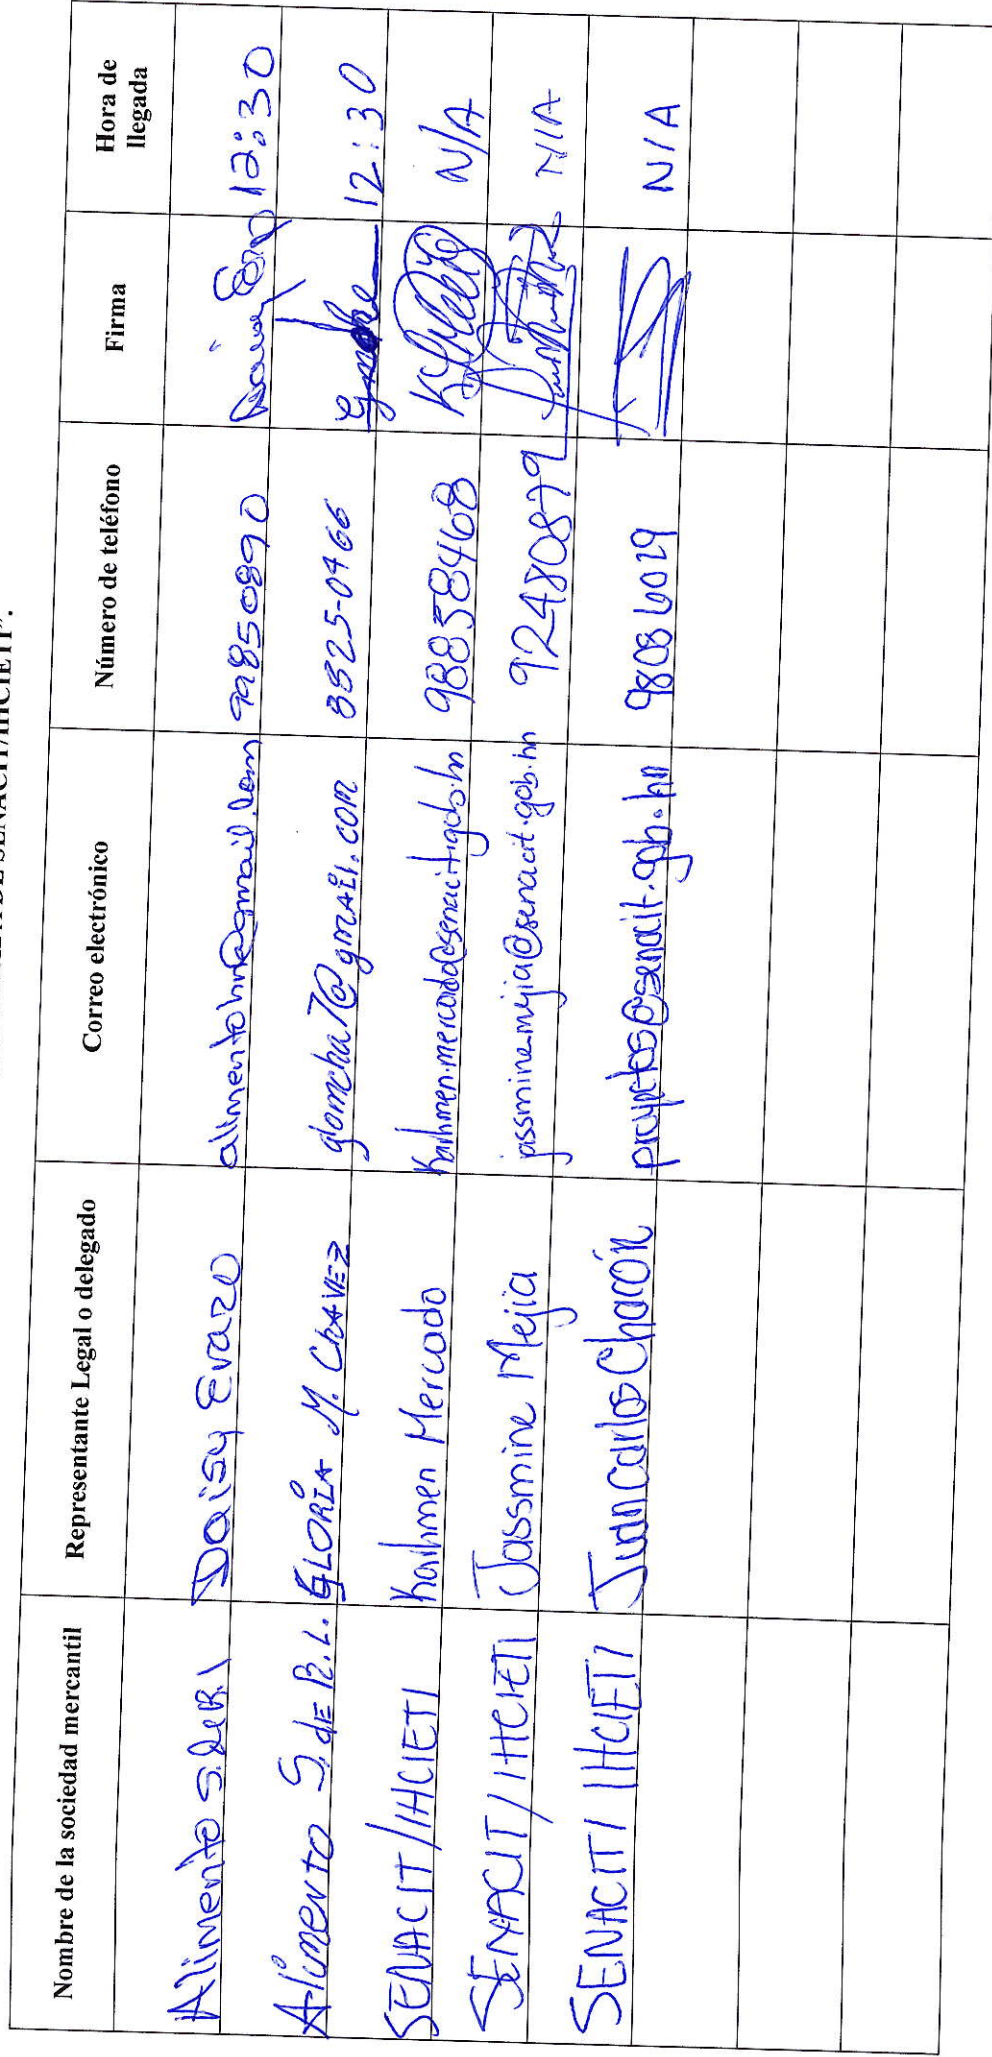 DE SENACIT/IHCIETI".
Nombre de la sociedad mercantil Representante Legal o delegado Correo electrónico Número de teléfono Firma Hora de llegada
Alimento S.deR.l Daisy Erazo alimentohn@gmail.com 99850890 12:30
Alimento S.de R.L. GLORIA M. CHAVEZ glomcha7@gmail.com 12:30
SENACIT/IHCIETI Kaihmen Mercado kaihmen.mercado@senacit.gob.hn 98858468 N/A
SENACIT/IHCIETI Jassmine Mejia jassmine.mejia@senacit.gob.hn 92480879 N/A
SENACIT/IHCIETI Juan Carlos Chacón proyectos@senacit.gob.hn 98086029 N/A